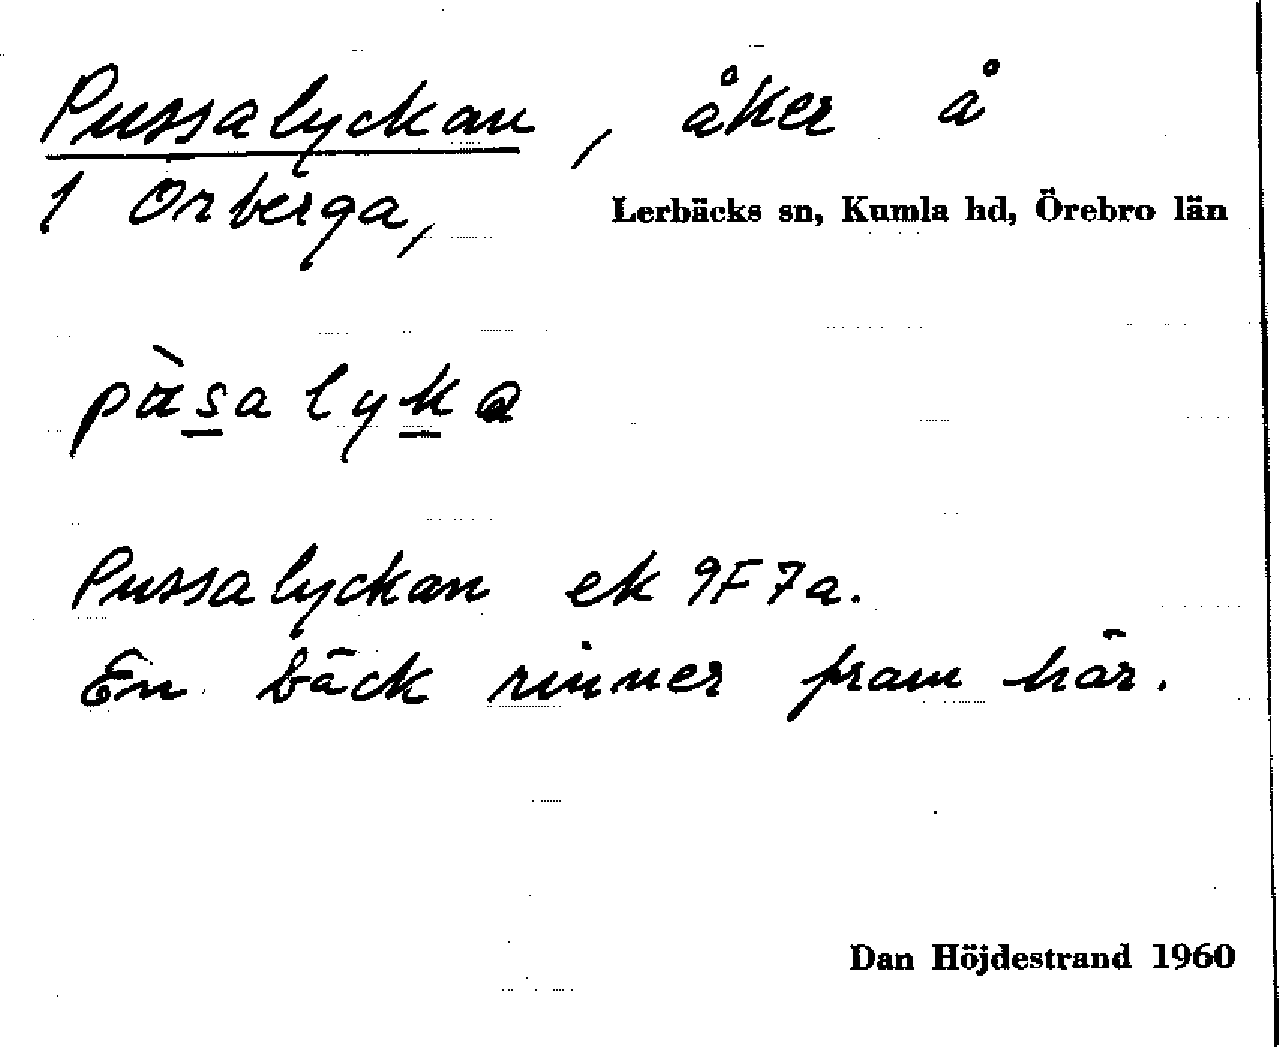 Pussalyckan, åker å
1 Örberga, Lerbäcks sn, Kumla hd, Örebro län
pùsalyka
Pussalyckan ek 9F7a.
En bäck rinner fram här.
Dan Höjdestrand 1960